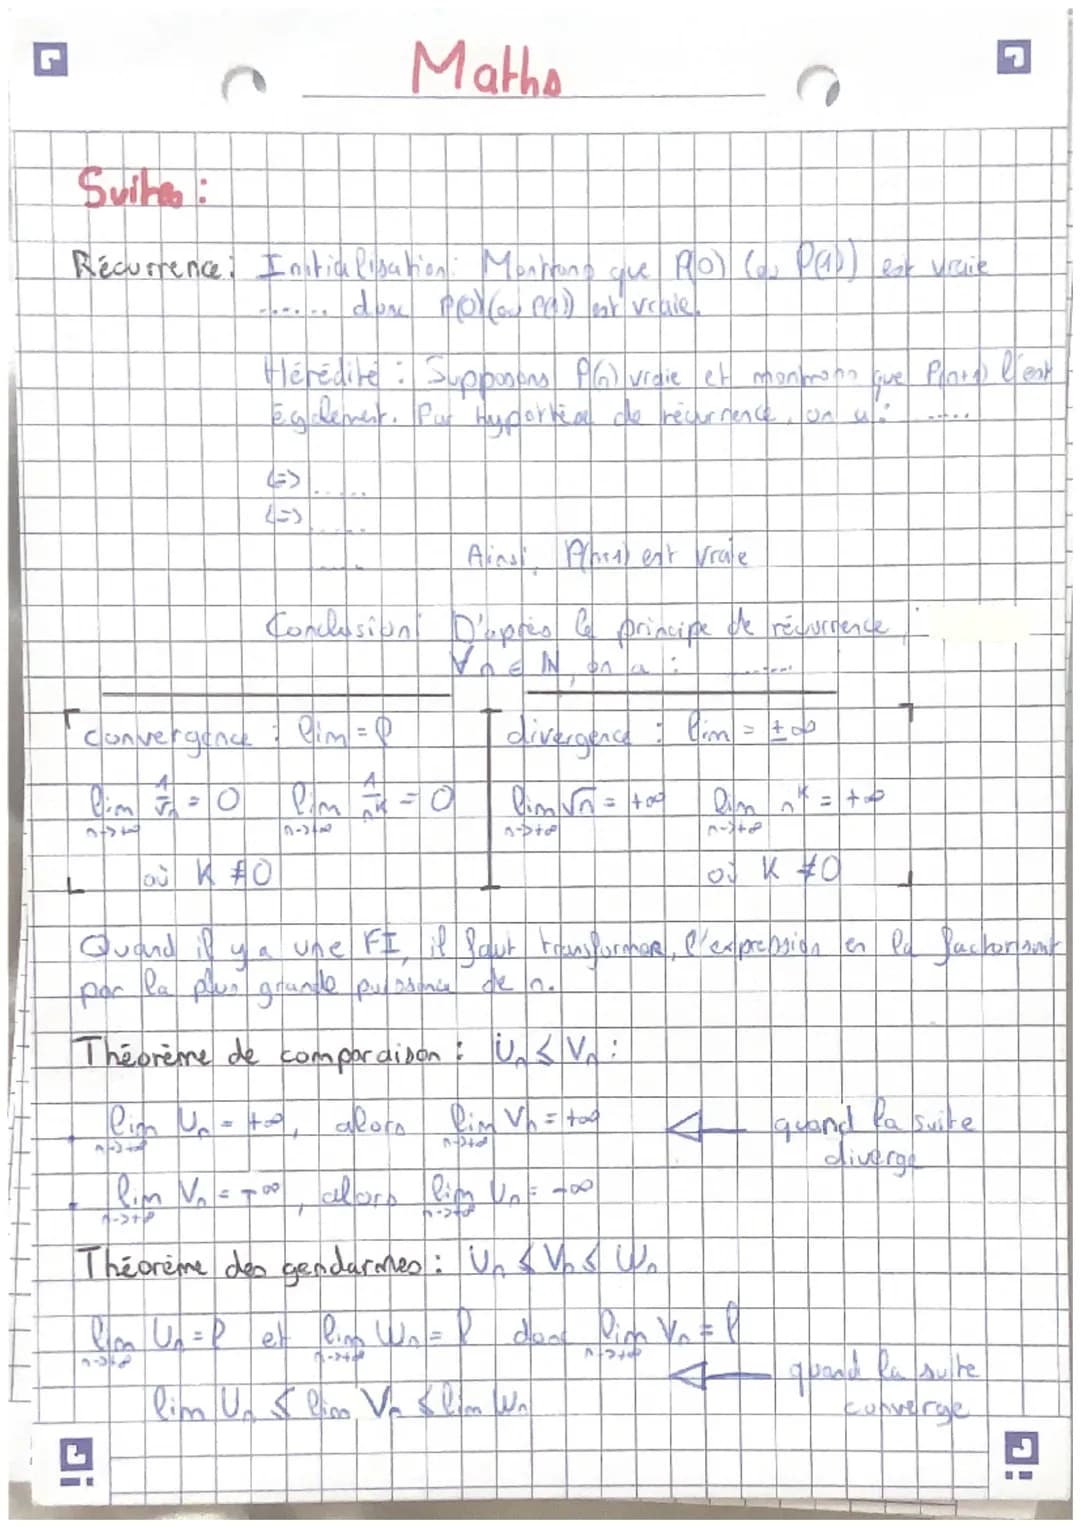 Maths
Suites :
Récurrence : Initialisation : Montrons que P(0) (ou P(1)) est vraie
...... donc P(0) (ou P(1)) est vraie.
Hérédité : Supposons P(n) vraie et montrons que P(n+1) l'est
également. Par hypothèse de récurrence, on a : .....
(=) ......
(=) ......
......
Ainsi, P(n+1) est vraie
Conclusion : D'après le principe de récurrence,
∀n ∈ ℕ, on a : ......
convergence : lim = l
divergence : lim = ±∞
lim 1/√n = 0 lim 1/n^K = 0
n->+∞ n->+∞
où K ≠ 0
lim √n = +∞ lim n^K = +∞
n->+∞ n->+∞
où K ≠ 0
Quand il y a une FI, il faut transformer l'expression en la factorisant
par la plus grande puissance de n.
Théorème de comparaison : Un ≤ Vn :
lim Un = +∞, alors lim Vn = +∞
n->+∞ n->+∞
quand la suite
diverge
lim Vn = -∞, alors lim Un = -∞
n->+∞ n->+∞
Théorème des gendarmes : Un ≤ Vn ≤ Wn
lim Un = l et lim Wn = l donc lim Vn = l
n->+∞ n->+∞ n->+∞
quand la suite
converge
lim Un ≤ lim Vn ≤ lim Wn